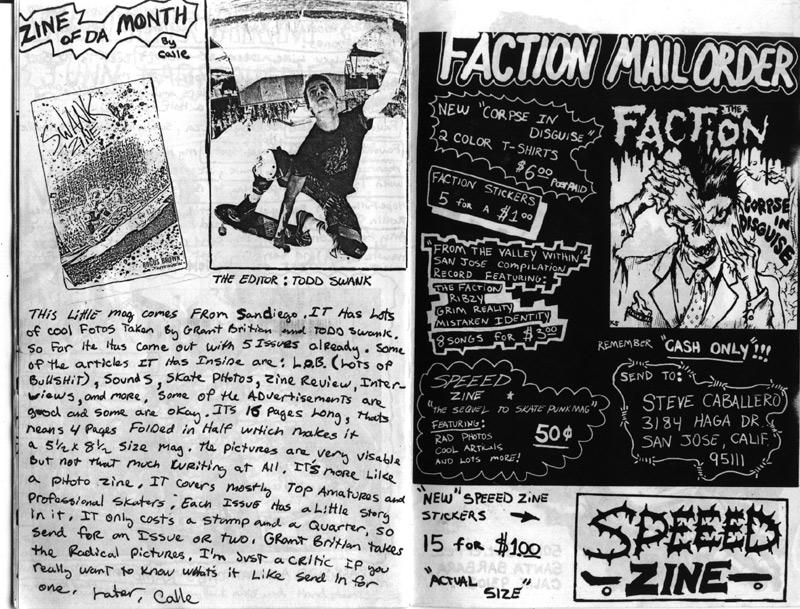 ZINE
OF DA MONTH
By
Calle
SWANK
ZINE
THE EDITOR: TODD SWANK
THIS LITTLE mag comes FROM Sandiego. IT Has Lots
of cool Fotos Taken By Grant Britian and TODD Swank.
So Far He Has Come out with 5 Issues already. Some
of the articles IT Has Inside are: L.O.B. (Lots of
Bullshit), Sounds, Skate Photos, Zine Review, Inter-
views, and more, Some of the Advertisements are
good and some are okay. ITS 16 Pages Long, thats
means 4 Pages Folded in Half which makes it
a 5½ x 8½ Size Mag. The pictures are very visable
But not that much Writing at All. IT'S more Like
a photo zine. IT covers mostly Top Amatures and
Professional Skaters. Each Issue Has a Little Story
In it. IT only costs a stamp and a Quarter, So
send for an Issue or two. Grant Britian takes
the Radical Pictures. I'm Just a Critic If you
really want to know whats it Like Send In for
one. Later, Calle
FACTION MAIL ORDER
NEW "CORPSE IN
DISGUISE"
2 COLOR T-SHIRTS
$6.00
POSTPAID
FACTION STICKERS
5 FOR A $1.00
"FROM THE VALLEY WITHIN"
SAN JOSE COMPILATION
RECORD FEATURING:
THE FACTION
RIBZY
GRIM REALITY
MISTAKEN IDENTITY
8 SONGS FOR $3.00
THE
FACTION
CORPSE
IN
DISGUISE
REMEMBER "CASH ONLY"!!!
SPEEED
ZINE
"THE SEQUEL TO SKATE PUNK MAG"
FEATURING:
RAD PHOTOS
COOL ARTICALS
AND LOTS MORE!
50¢
SEND TO:
STEVE CABALLERO
3184 HAGA DR.
SAN JOSE, CALIF.
95111
"NEW" SPEEED ZINE
STICKERS
15 FOR $1.00
"ACTUAL
SIZE"
SPEEED
ZINE